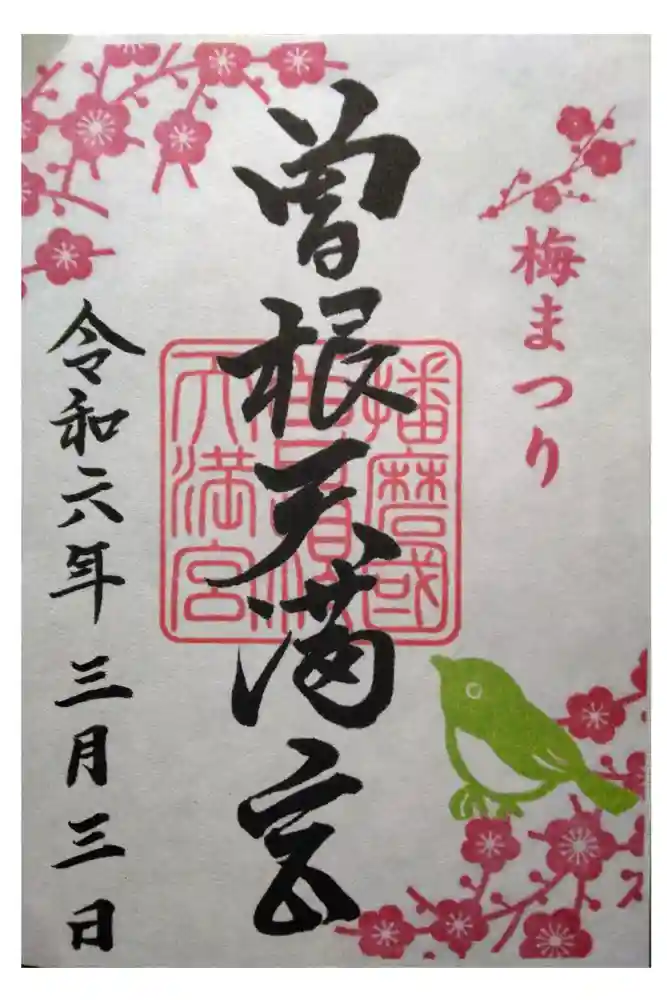 梅まつり
曽根天満宮
播磨國
曽根
天満宮
令和六年三月三日